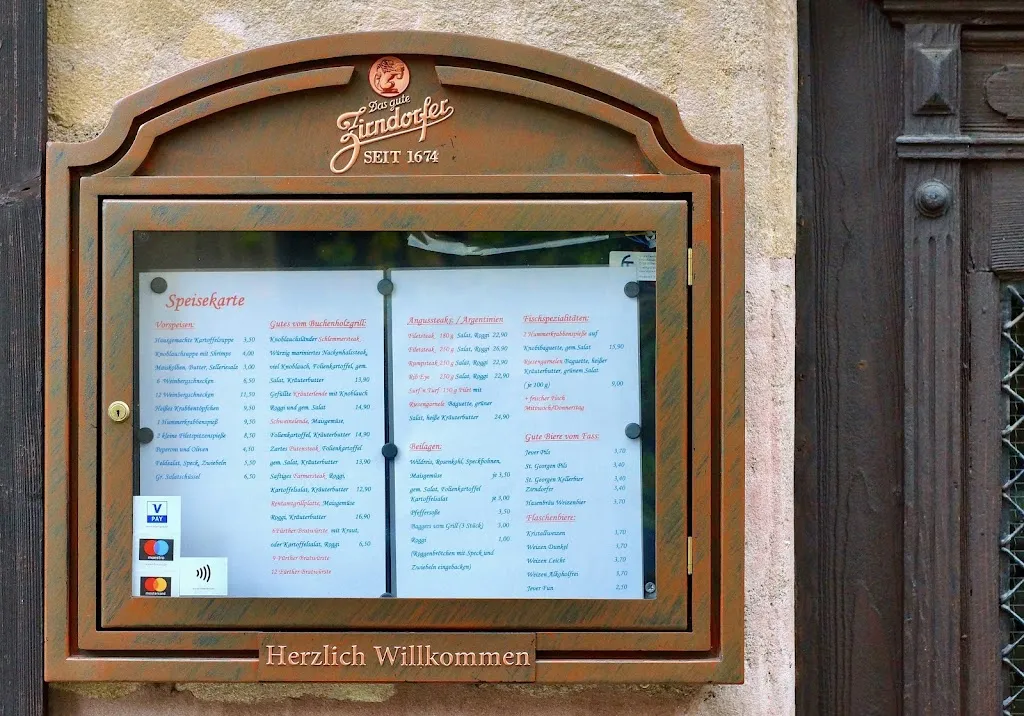 Das gute
Zirndorfer
SEIT 1674
Speisekarte
Vorspeisen:
Hausgemachte Kartoffelsuppe 3,50
Knoblauchsuppe mit Shrimps 4,00
Butter, Selleriesalz 3,00
6 Weinbergschnecken 6,50
12 Weinbergschnecken 11,50
Heißes Krabbentöpfchen 9,50
1 Hummerkrabbenspieß 9,50
2 kleine Filetspitzenspieße 8,50
Peperoni und Oliven 4,50
Feldsalat, Speck, Zwiebeln 5,50
Gr. Salatschüssel 6,50
Gutes vom Buchenholzgrill:
Knoblauchsländer Schlemmersteak
Würzig mariniertes Nackenhalssteak,
viel Knoblauch, Folienkartoffel, gem.
Salat, Kräuterbutter 13,90
Gefüllte Kräuterlende mit Knoblauch
Roggi und gem. Salat 14,90
Schweinelende, Maisgemüse,
Folienkartoffel, Kräuterbutter 14,90
Zartes Putensteak, Folienkartoffel
gem. Salat, Kräuterbutter 13,90
Saftiges Farmersteak, Roggi,
Kartoffelsalat, Kräuterbutter 12,90
Rentamtgrillplatte, Maisgemüse
Roggi, Kräuterbutter 16,90
6 Fürther Bratwürste mit Kraut,
oder Kartoffelsalat, Roggi 6,50
9 Fürther Bratwürste
12 Fürther Bratwürste
Angussteaks: / Argentinien
Filetsteak 180 g Salat, Roggi 22,90
Filetsteak 250 g Salat, Roggi 26,90
Rumpsteak 250 g Salat, Roggi 22,90
Rib Eye 250 g Salat, Roggi 22,90
Surf'n Turf 150 g Filet mit
Riesengarnele Baguette, grüner
Salat, heiße Kräuterbutter 24,90
Beilagen:
Wildreis, Rosenkohl, Speckbohnen,
Maisgemüse je 3,50
gem. Salat, Folienkartoffel
Kartoffelsalat je 3,00
Pfeffersoße 3,50
Baggers vom Grill (3 Stück) 3,00
Roggi 1,00
(Roggenbrötchen mit Speck und
Zwiebeln eingebacken)
Fischspezialitäten:
2 Hummerkrabbenspieße auf
Knobibaguette, gem. Salat 15,90
Riesengarnelen Baguette, heißer
Kräuterbutter, grünem Salat
(je 100 g) 9,00
+ frischer Fisch
Mittwoch/Donnerstag
Gute Biere vom Fass:
Jever Pils 3,70
St. Georgen Pils 3,40
St. Georgen Kellerbier 3,40
Zirndorfer 3,40
Hasenbräu Weizenbier 3,70
Flaschenbiere:
Kristallweizen 3,70
Weizen Dunkel 3,70
Weizen Leicht 3,70
Weizen Alkoholfrei 3,70
Jever Fun 2,50
V
PAY
maestro
mastercard
Herzlich Willkommen